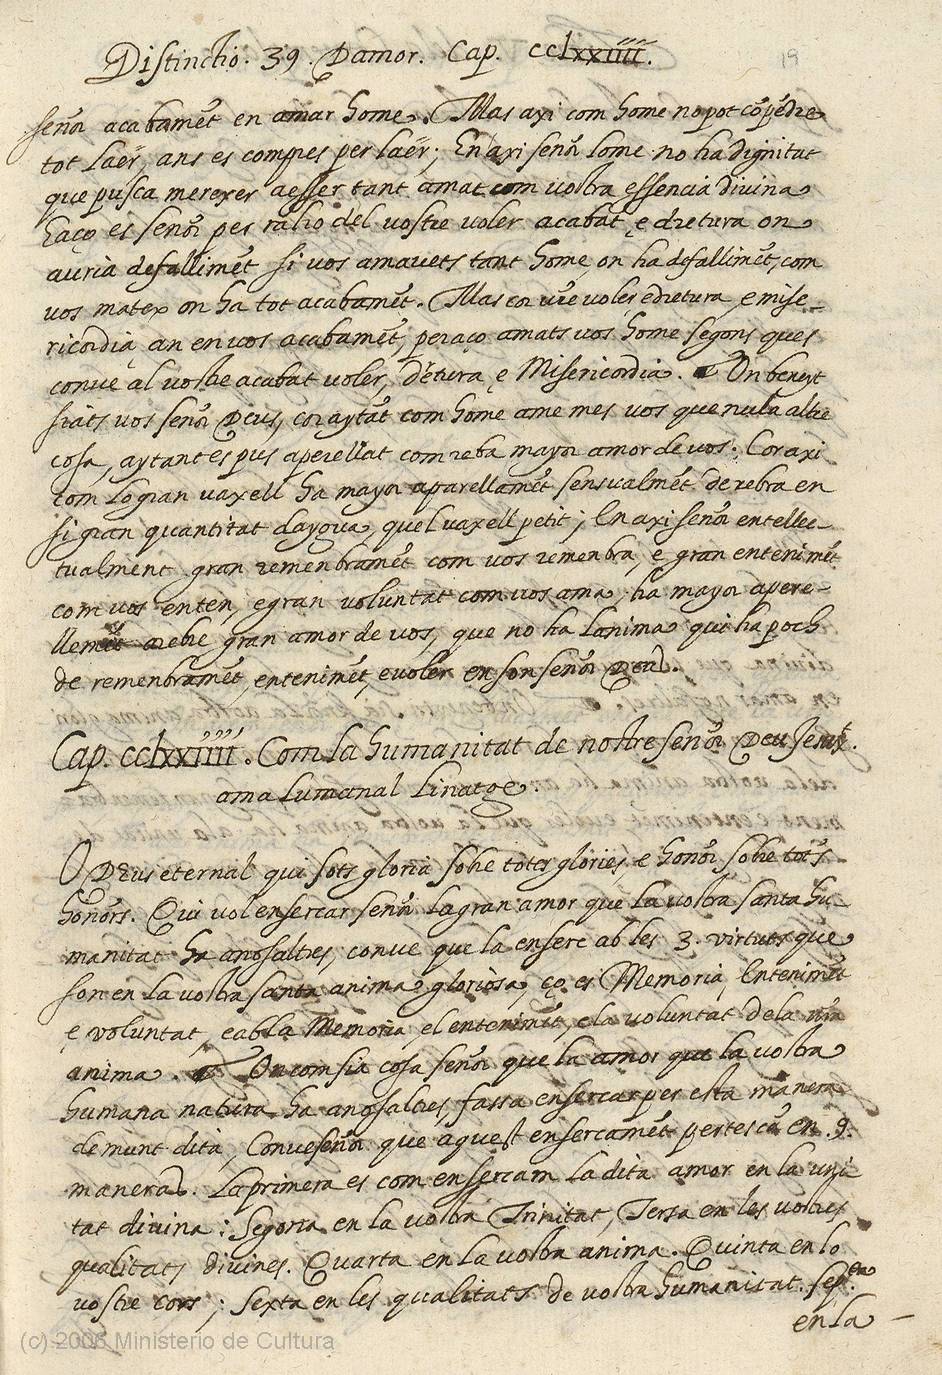 Distinctio. 39. Damor. Cap. cclxxiiii.
19
señor acabamẽt en amar home. Mas axi com home no pot cõpẽdre
tot Laër, ans es compres per laër; En axi señor lome no ha dignitat
que pusca merexer aesser tant amat com vostra essencia divina
Eaço es señor per rahio del vostre voler acabat, e dretura on
auria defallimẽt si vos amavets tant home, on ha defallimẽt, com
vos matex on ha tot acabamẽt. Mas cor vre voler, e dretura, e mise-
ricordia, an en vos acabamẽt, peraço amats vos home segons ques
conve al vostre acabat voler, dretura e Misericordia. On beneyt
siats vos señor Deus, cor aytãt com home ame mes vos que nula altre
cosa, aytant es pus aperellat com reba mayor amor de vos. Cor axi
com lo gran vaxell ha mayor aparellamẽt sensualmẽt de rebra en
si gran quantitat dayqua, quel vaxell petit; En axi señor entellec-
tualment gran remenbramẽt com vos remenbra, e gran entenimẽt
com vos enten, e gran voluntat com vos ama, ha mayor apere-
llemẽt arebre gran amor de vos, que no ha Lanima qui ha poch
de remenbramẽt, entenimẽt, e voler en son señor Deu.
Cap. cclxxiiii. Com la humanitat de nostre señor Deu Jesuxt.
ama Lumanal Linatge.
O Deus eternal qui sots gloria sobre totes glories, e honor sobre tots
honors. Qui vol ensercar señor Lagran amor que La vostra santa hu-
manitat ha anosaltres, conve que la enserc ab les 3. virtuts que
son en La vostra santa anima gloriosa, ço es Memoria, Entenimẽt
e voluntat, e abla Memoria, el entenimẽt, e la voluntat dela nr̃a
anima. On com sia cosa señor que la amor que la vostra
humana natura ha anosaltres, fassa ensercar per esta manera
demunt dita, Conve señor que aquest ensercamẽt pertescã en .9.
maneras. La primera es com ensercam La dita amor en la uni-
tat divina: Segona en la vostra Trinitat, Tersa en les vostres
qualitats divines. Quarta en la vostra anima. Quinta en lo
vostre cors; Sexta en les qualitats de vostra humanitat. sep.ma
en la
(c) 2006 Ministerio de Cultura